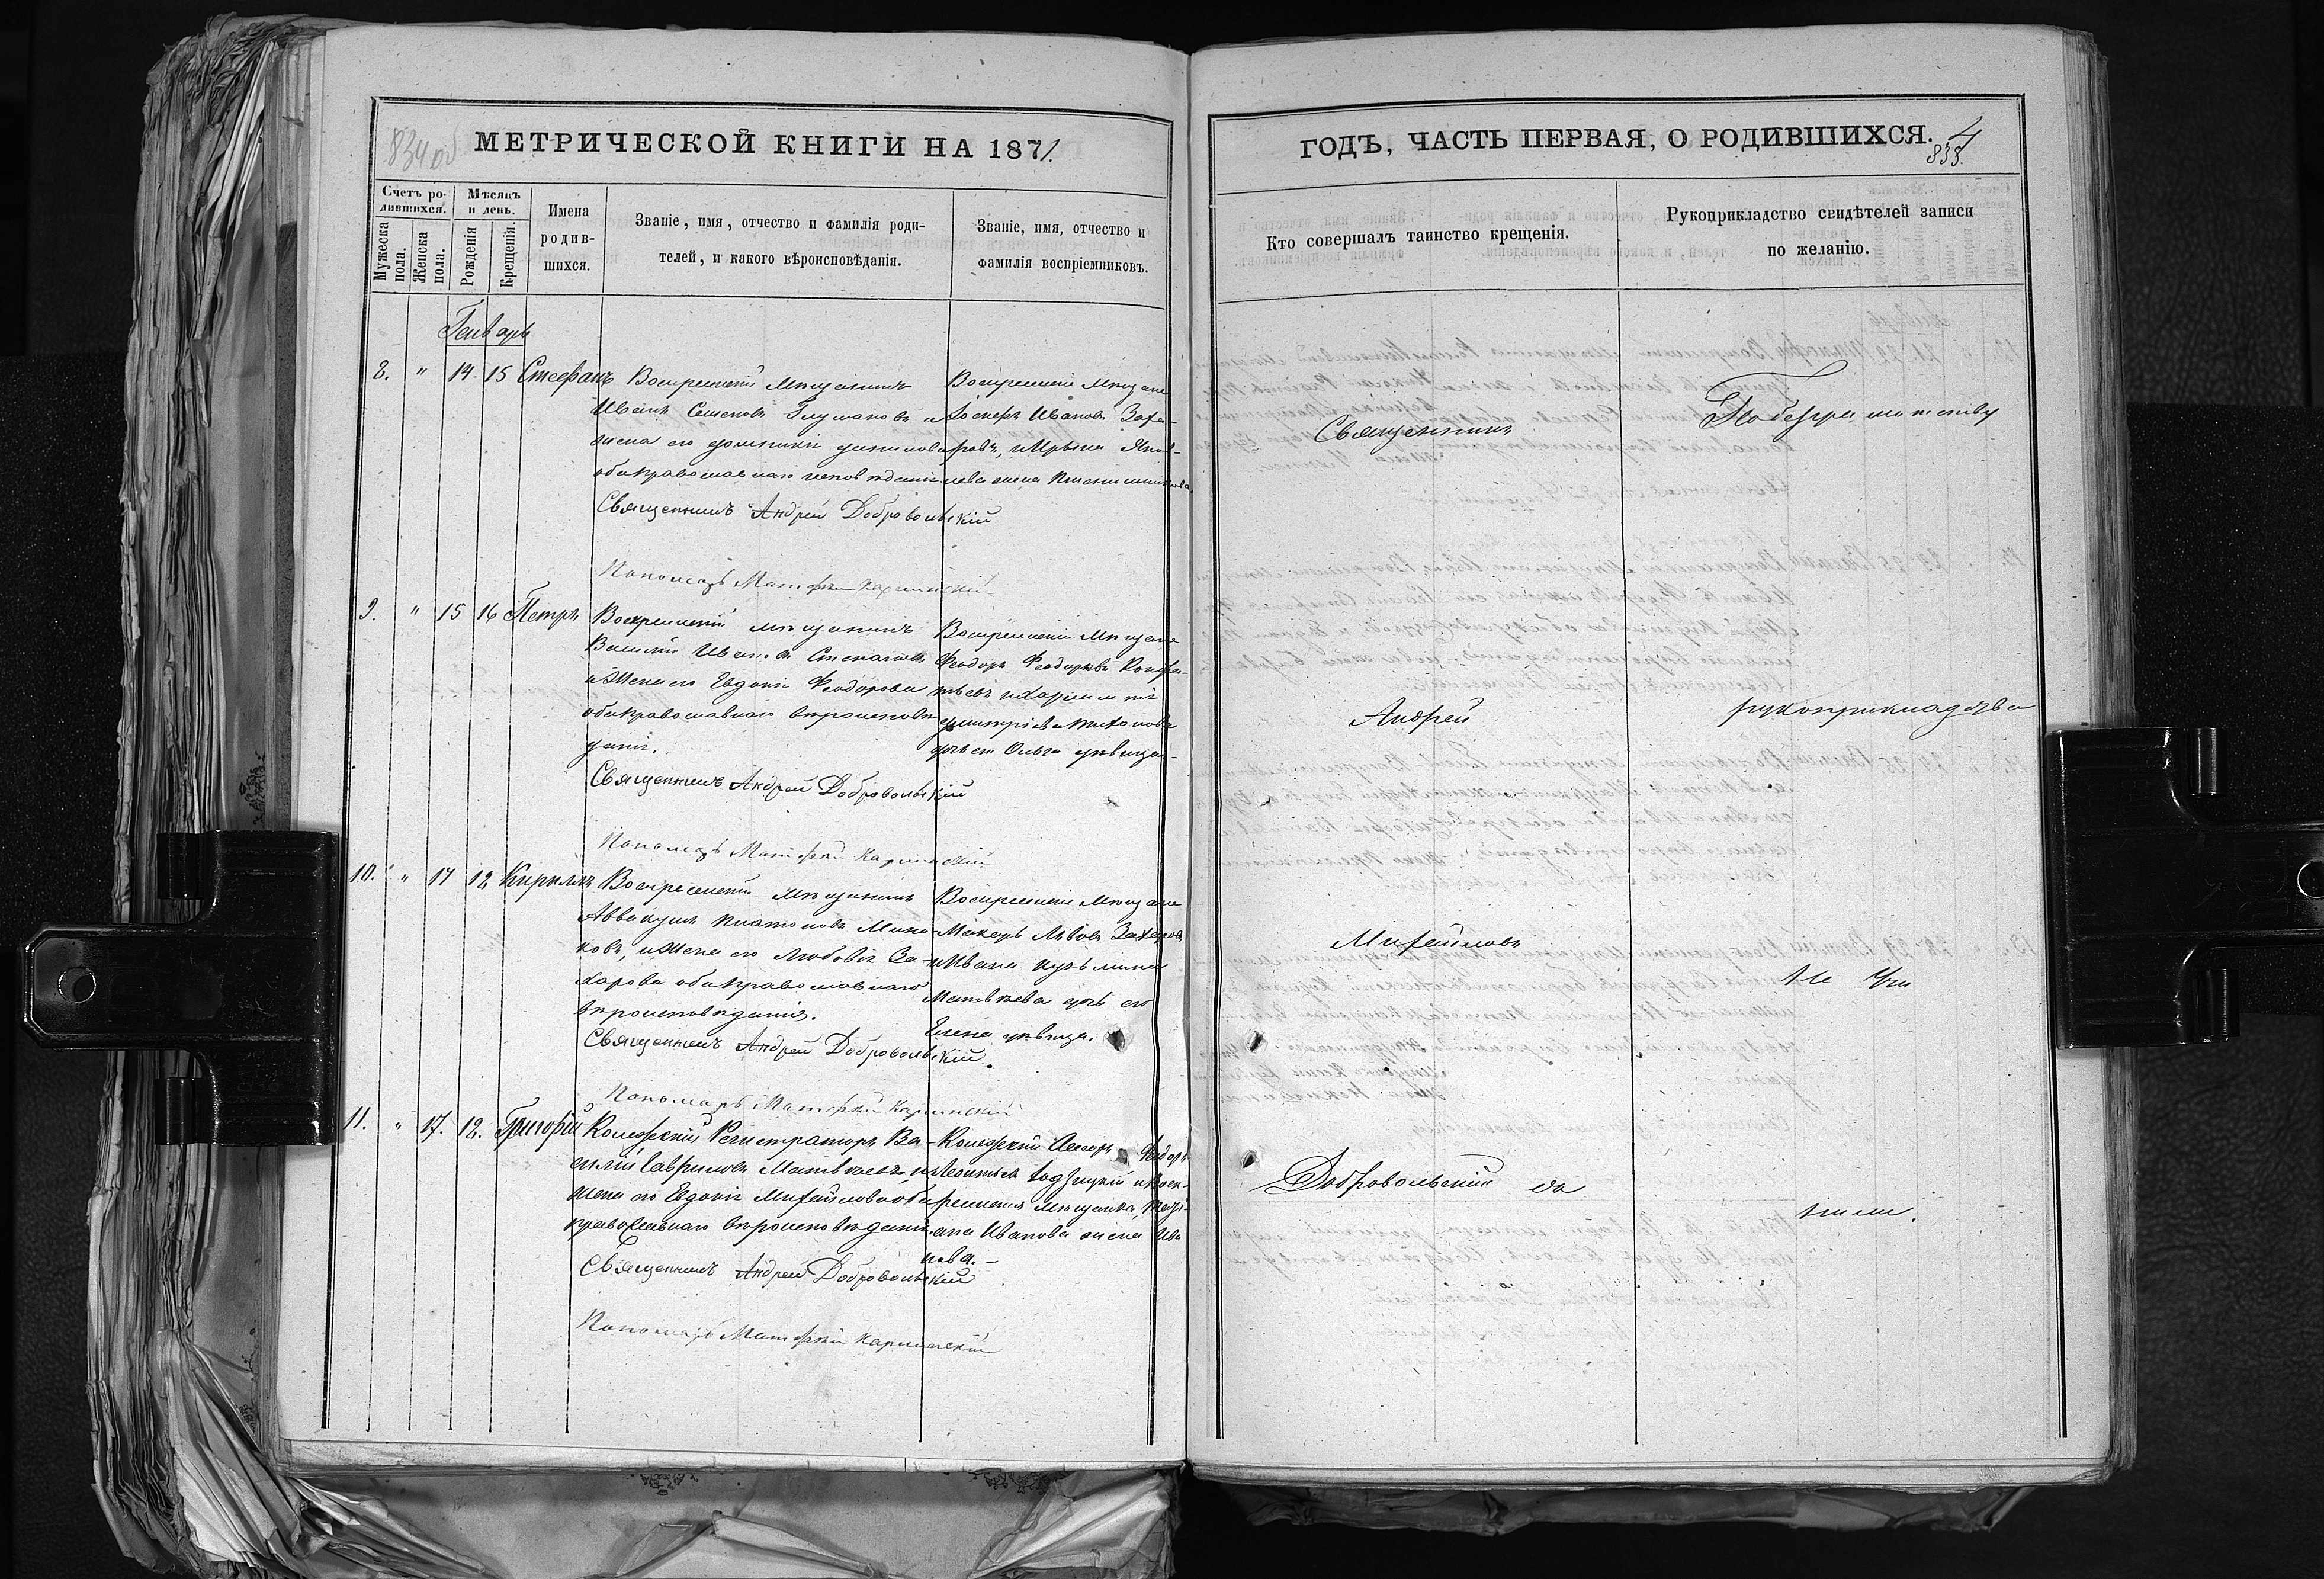 834 об
МЕТРИЧЕСКОЙ КНИГИ НА 1871.
Счетъ родившихся.
Мужеска пола.
Женска пола.
Мѣсяцъ и день.
Рожденія
Крещенія.
Имена родившихся.
Званіе, имя, отчество и фамилія родителей, и какого вѣроисповѣданія.
Званіе, имя, отчество и фамилія воспріемниковъ.
Генварь
8. " 14 15 Стефанъ
Воскресенскій Мѣщанинъ
Иванъ Семеновъ Глумаковъ и
жена его
оба православнаго исповѣданія
Священникъ Андрей Добровольскій
Пономарь Матфей Карпинскій
Воскресенскіе Мѣщане
Іосифъ Ивановъ Заха-
ровъ, и Ирина Яков-
лева жена
9. " 15 16 Петръ
Воскресенскій мѣщанинъ
Василій Ивановъ Степановъ
и Жена его Евдокія Феодорова
оба православнаго вѣроисповѣ-
данія.
Священникъ Андрей Добровольскій
Пономарь Матфей Карпинскій
Воскресенскіе Мѣщане
Феодоръ Феодоровъ
дочь Ольга дѣвица
10. " 17 18 Кириллъ
Воскресенскій мѣщанинъ
Аввакумъ Платоновъ Мина-
ковъ, и Жена его Любовь За-
харова оба православнаго
вѣроисповѣданія.
Священникъ Андрей Добровольскій.
Пономарь Матфей Карпинскій
Воскресенскіе Мѣщане
Макаръ Львовъ Захаровъ
и Ивана Кузьмина
Матвѣева дочь его
Елена дѣвица.
11. " 17. 18. Григорій
Колежскій Регистраторъ Ва-
силій Гавриловъ Матвѣевъ, и
жена его Евдокія Михайлова оба
православнаго вѣроисповѣданія
Священникъ Андрей Добровольскій
Пономарь Матфей Карпинскій
Колежскій Асесоръ Федоръ
Леонтьевъ и Воск-
ресенская мѣщанка,
Иванова жена Ива
нова.-
ГОДЪ, ЧАСТЬ ПЕРВАЯ, О РОДИВШИХСЯ.
4
835.
Кто совершалъ таинство крещенія.
Рукоприкладство свидѣтелей записи по желанію.
Священникъ
Андрей
Михайловъ
Добровольскій
По безграмотству
рукоприкладства
не учи
нили.